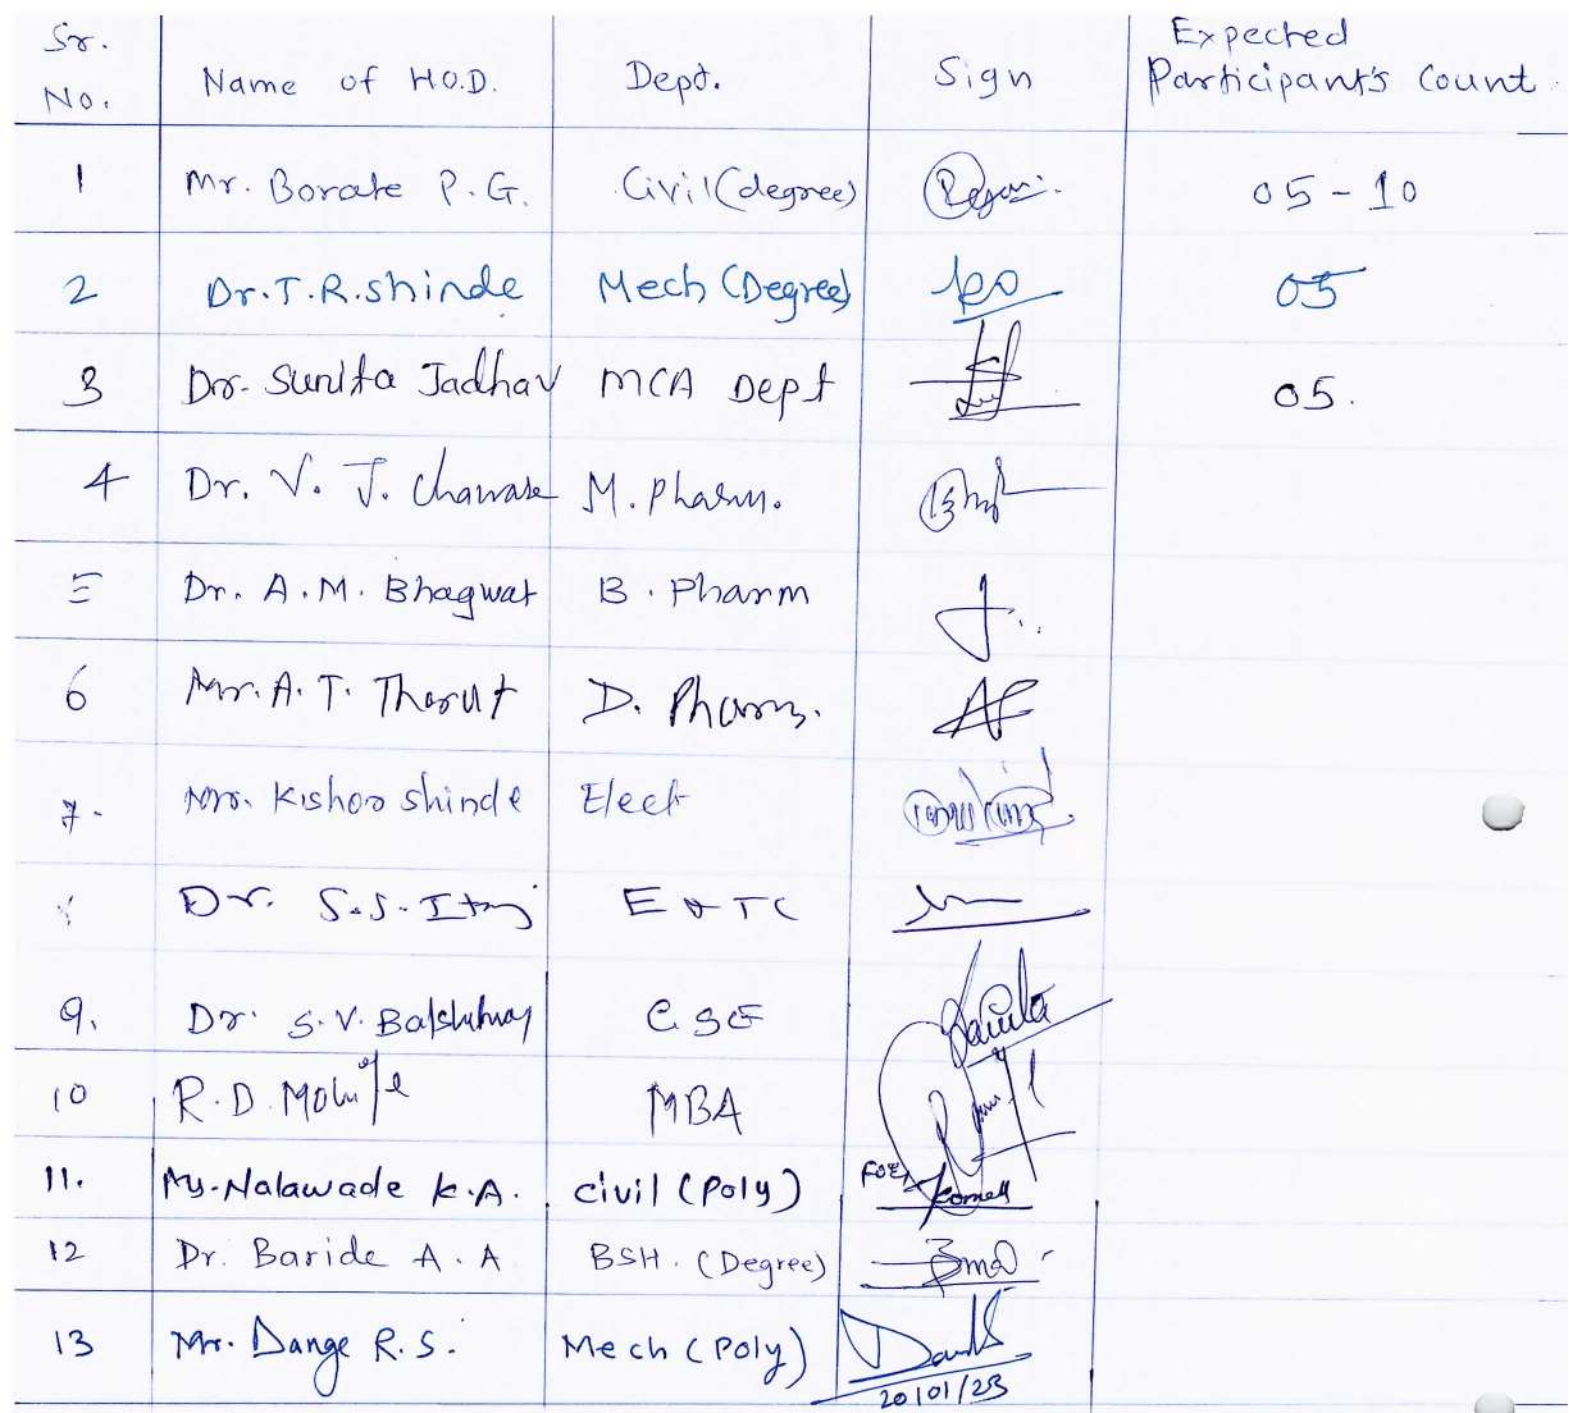 Sr. No. Name of H.O.D. Dept. Sign Expected Participant's Count
1 Mr. Borate P.G. Civil (degree) 05-10
2 Dr. T.R. Shinde Mech (Degree) 05
3 Dr. Sunita Jadhav MCA Dept 05.
4 Dr. V. J. M. Pharm.
5 Dr. A.M. Bhagwat B. Pharm
6 Mr. A. T. Thorut D. Pharm.
7. Mr. Kishor Shinde Elect
Dr. S.S. E & TC
9. Dr. S.V. CSE
10 R.D. MBA
11. Ms. Nalawade K.A. Civil (Poly) FOR
12 Dr. Baride A.A BSH. (Degree)
13 Mr. Dange R.S. Mech (Poly)
20/01/23